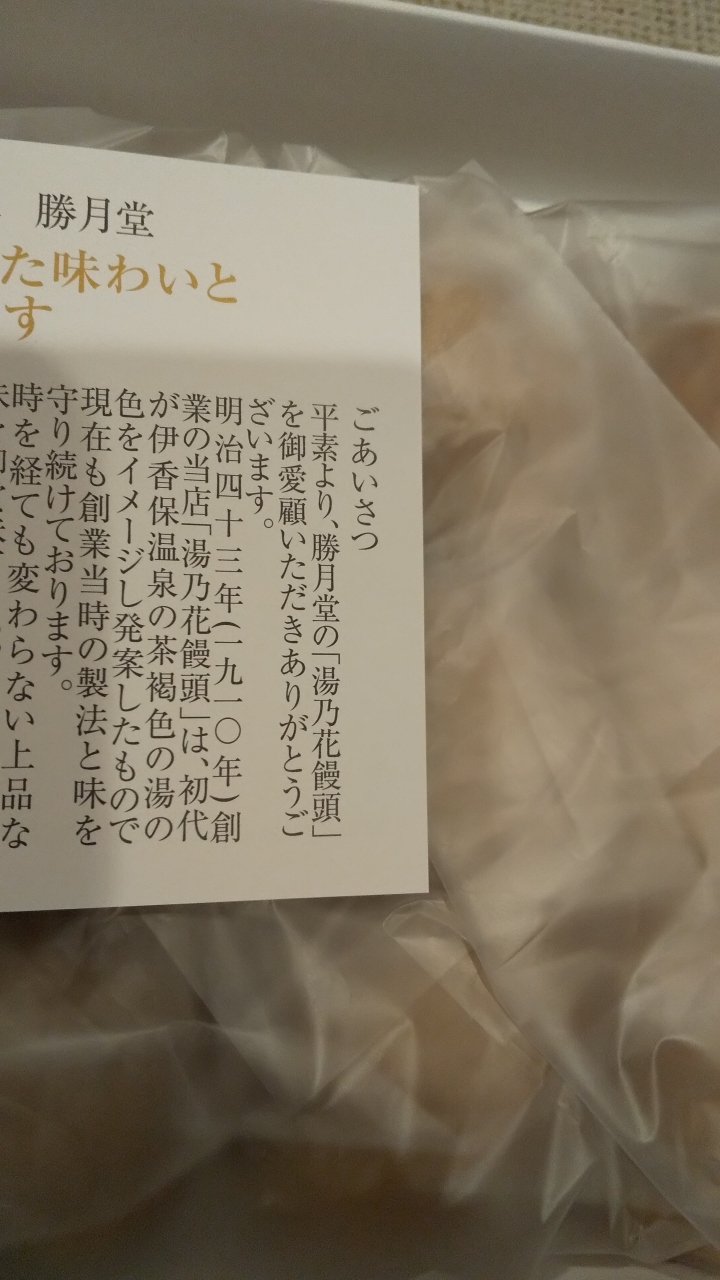 勝月堂
た味わいと
す
ごあいさつ
平素より、勝月堂の「湯乃花饅頭」
を御愛顧いただきありがとうご
ざいます。
明治四十三年(一九一〇年)創
業の当店「湯乃花饅頭」は、初代
が伊香保温泉の茶褐色の湯の
色をイメージし発案したもので
現在も創業当時の製法と味を
守り続けております。
時を経ても変わらない上品な